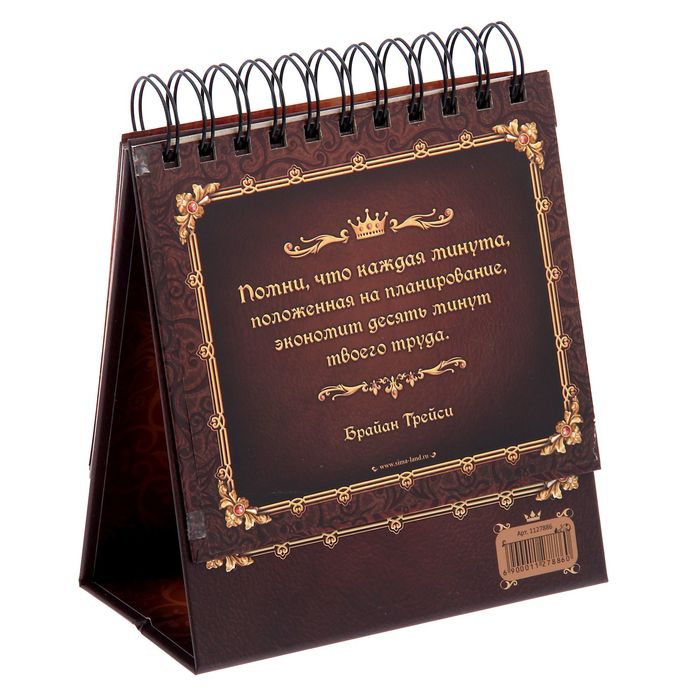 Помни, что каждая минута,
положенная на планирование,
экономит десять минут
твоего труда.
Брайан Трейси
www.sima-land.ru
Арт. 1127886
6 900011 278860